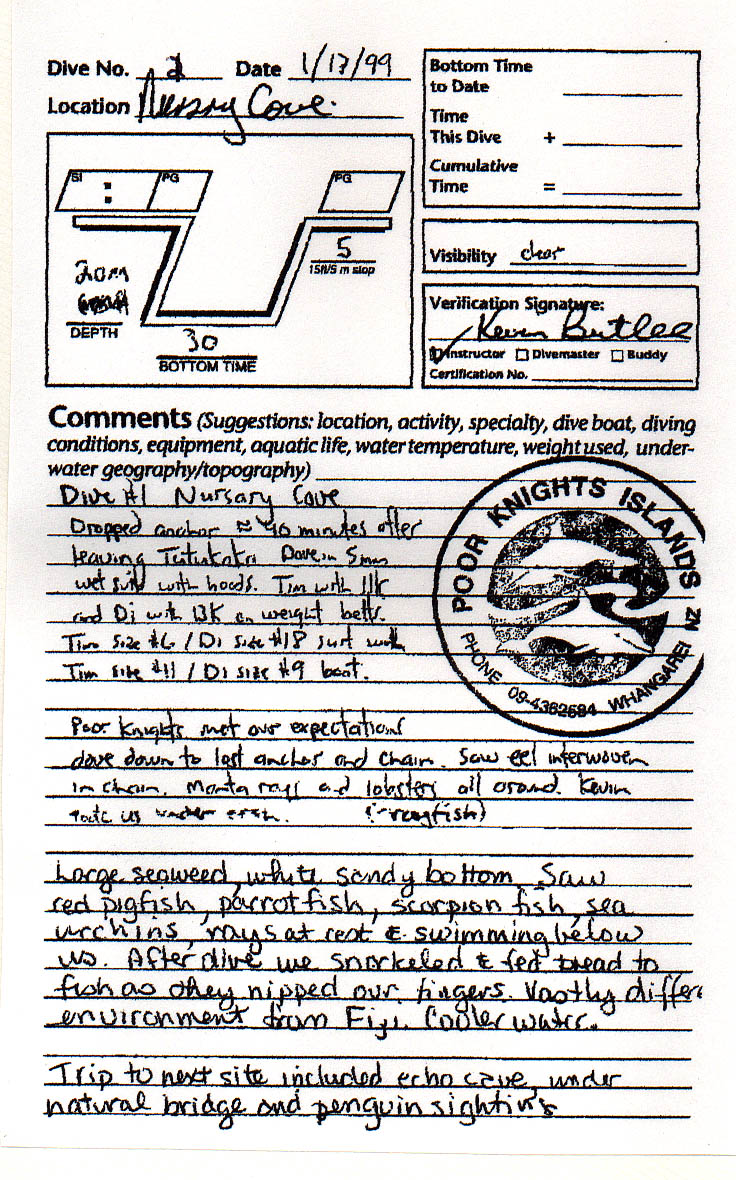 Dive No. 2 Date 1/17/99
Location Nursary Cove.
Bottom Time
to Date
Time
This Dive +
Cumulative
Time =
SI : PG
PG
20m
DEPTH
30
BOTTOM TIME
5
15ft/5 m stop
Visibility clear
Verification Signature:
Kevin Butlee
Instructor Divemaster Buddy
Certification No.
Comments (Suggestions: location, activity, specialty, dive boat, diving
conditions, equipment, aquatic life, water temperature, weight used, under-
water geography/topography)
POOR KNIGHTS ISLANDS NZ
PHONE 09-4362584 WHANGAREI
Dive #1 Nursary Cove
Dropped anchor ≈ 40 minutes after
leaving Tutukaka Dove in 5mm
wet suits with hoods. Tim with 11K
and Di with 13K on weight belts.
Tim size #6 / Di size #18 suit with
Tim size #11 / Di size #9 boot.
Poor Knights met our expectations
dove down to lost anchor and chain. Saw eel interwoven
in chain. Manta rays and lobsters all around. Kevin
took us under (crayfish)
Large seaweed, white sandy bottom. Saw
red pigfish, parrotfish, scorpion fish, sea
urchins, rays at rest & swimming below
us. After dive we snorkeled & fed bread to
fish as they nipped our fingers. Vastly differe
environment from Fiji. Cooler water.
Trip to next site included echo cave, under
natural bridge and penguin sightings